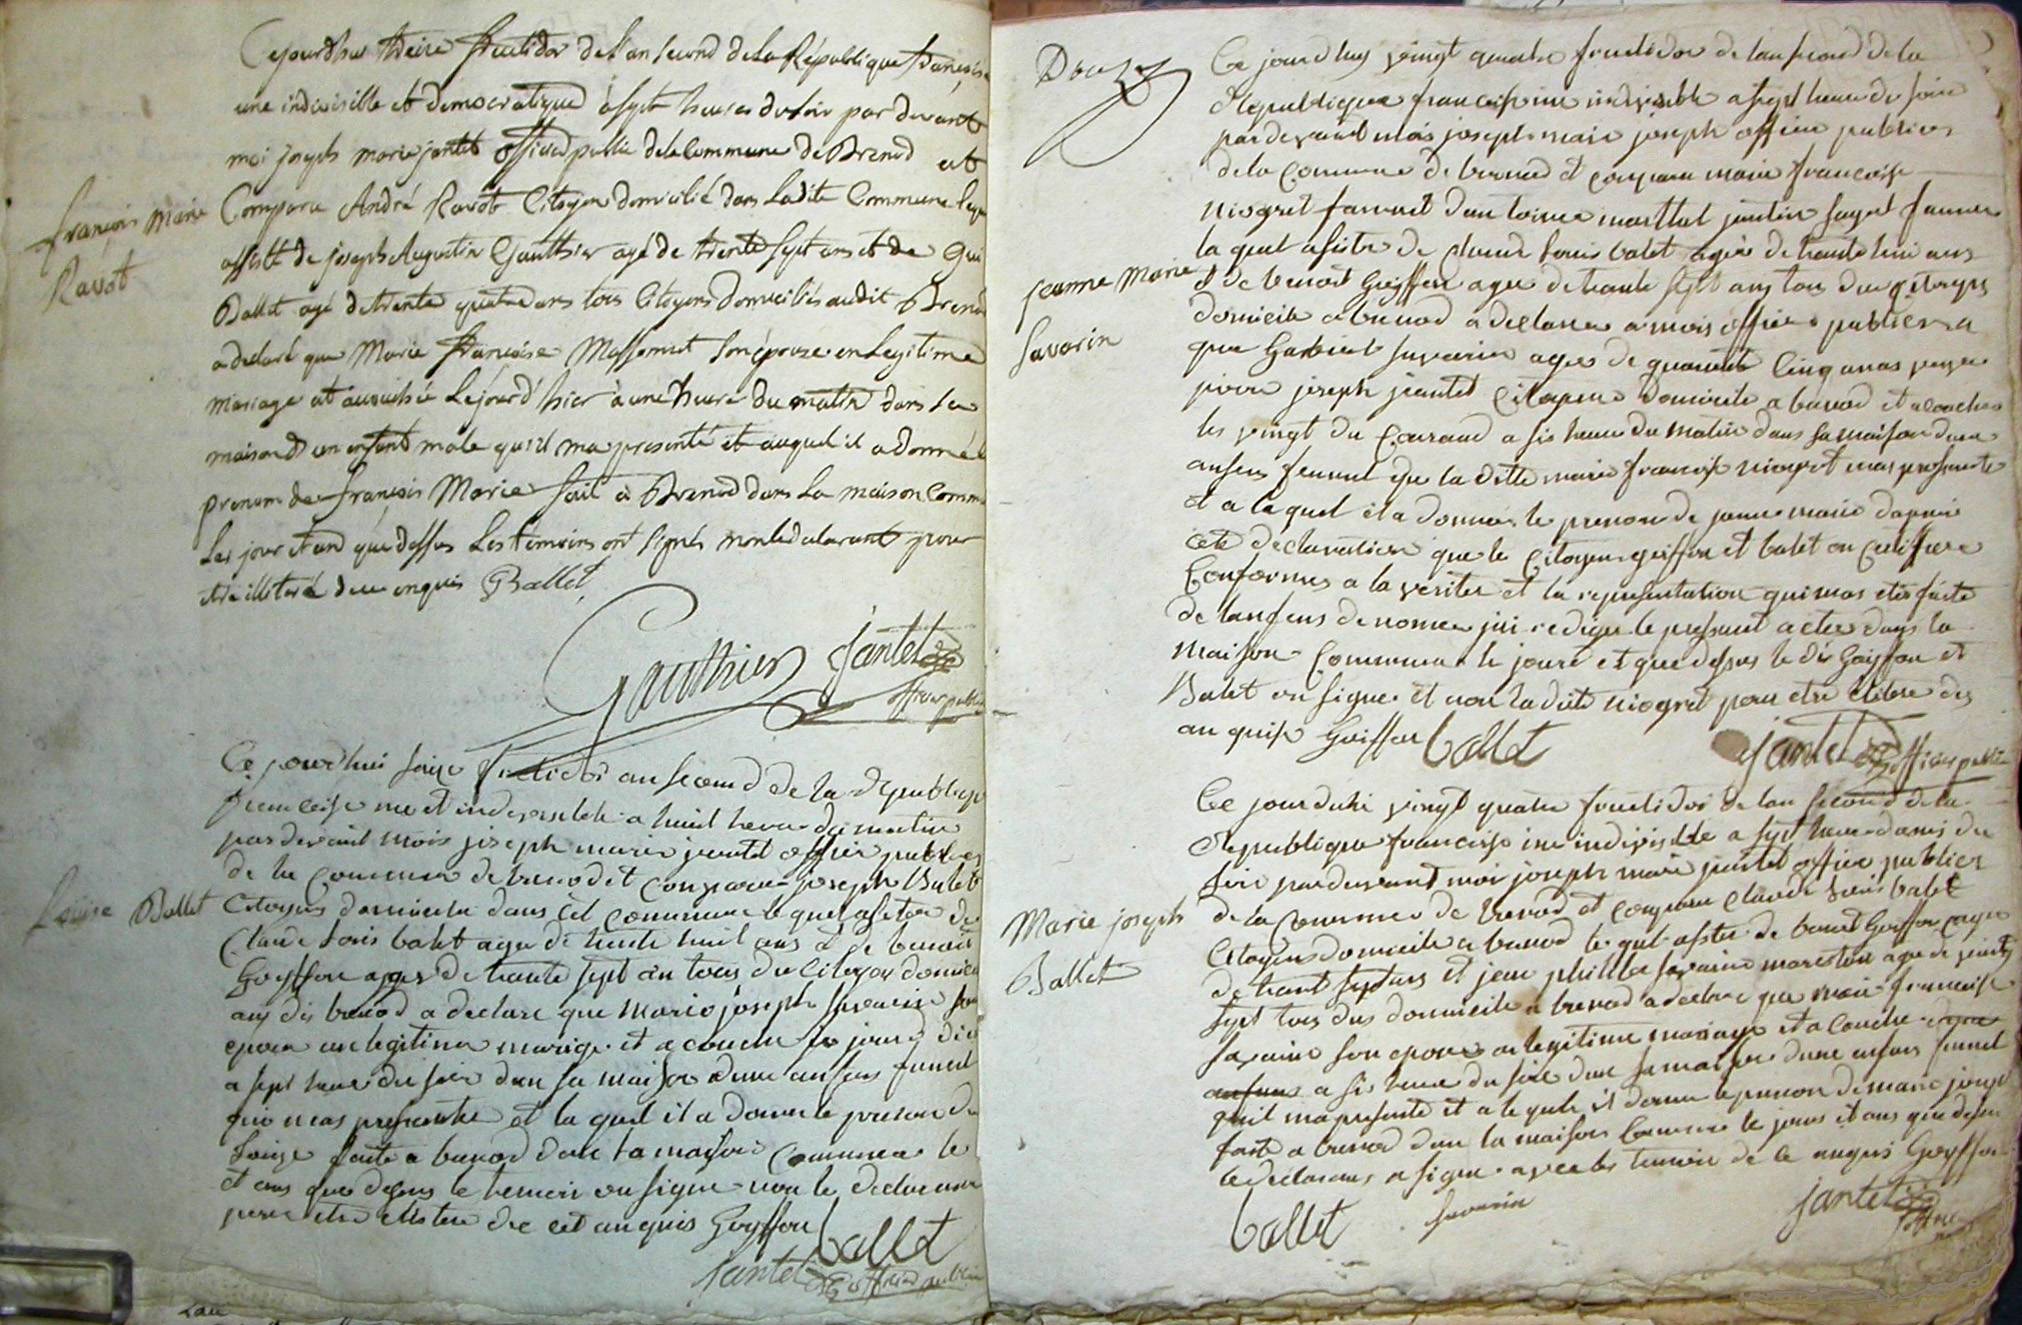 Cejourd'huy treize fructidor de l'an second de la République française
une indivisible et democratique a sept heures du soir par devant
moi joseph marie jantet officier public de la Commune de Brenod et
françois marie Ravot
Comparu André Ravot Citoyen domicilié dans Ladite Commune lequel
assisté de joseph Augustin Gauthier agé de trente sept ans et de
Ballet agé de trente quatre ans tous Citoyens domiciliés audit Brenod
a declaré que Marie françoise Massonnet son épouse en Legitime
mariage est accouchée Le jourd'hier à une heure du matin dans sa
maison d'un enfant mâle qu'il m'a presenté et auquel il a donné le
prenom de françois Marie fait à Brenod dans La maison Commune
Les jour et and que dessus Les témoins ont signés non le déclarant pour
être illiteré de ce enquis Ballet
Gauthier jantet officier public
Ce jourd'hui saize fructidor an second de la Republique
francaise une et indivisible a huit heure du matin
par devant mois joseph marie jantet officier publics
de la commune de brenod et conparu joseph Balet
Louise Ballet
Citoyens domicilie dans cet commune le quel asister de
Claude Louis balet age de trente huit ans et de benoit
Goyffon ages de trante sept an tous du citoyen domicile
au dis brenod a declare que marie joseph savarin son
epoux en legitime mariage et acouche jourd
a sept heure du soir dan sa maison dune anfans fumel
qui mas presentee et la quel il a donner le prenom de
Louise faite a brenod dans la maison commune le
et ans que desus le temoin on signe non le declarant
pour etre elitere de cet anquis Goyffon ballet
jantet officier public
Douze
Ce jourd huy vingt quatre fructidor de lan second de la
Republique francaise une indivisible a sept heure du soire
par devant mois joseph marie joseph officier publics
de la Commune de brenod et conparu marie francoise
niogret famme dantoine marttal jantin
la quel asiste de claude louis balet agee de trante huit ans
jeanne Marie Savarin
et de benoit Goyffon agee de trante sept ans tous deu citoyens
domicile a brenod a declaree a mois officier publics
que Gabriel savarin agee de quarante Cinq anas
pierre joseph jeantet citoyene domicile a brenod et acouchee
les vingt du Courand a sis heure du matin dans sa maison dun
anfans fumel que la ditte marie francoise niogret mas presente
et a la quel ila donner le prenom de jeanne marie dapres
cete declaration que le Citoyens goiffon et balet on certiffiere
Conformes a la veriter et la representation qui mas eter faite
de lanfans denomee jai rediger le presant actes dans la
Maison Commune le jours et que desus le dis Goiffon et
Balet on signe et non la dite niogret pour etre elitere de
anquise Goiffon ballet jantet officier public
Ce jourdhi vingt quatre fructidor de lan second de la
Republique francaise une indivisible a sept heure du
soir par devant moi joseph marie jantet officier publics
Marie joseph Ballet
de la commune de brenod et conparu Claude Louis balet
Citoyens domicile a brenod le quel asister de benoit Goiffon agee
de trant sept ans et jean philibe savarin agee de vingt
sept tous dus domicile a brenod a declare que marie francoise
savarin son epouse en legitime mariage et acouche
anfans a sis heure du soir dans sa maison dune anfans fumel
quil ma presente et a le quele il donne le prenom de marie joseph
fait a brenod dans la maison Commune le jours et ans que desus
le declarans a signe avec les temoin de ce anquis Goyffon
ballet savarin jantet officier